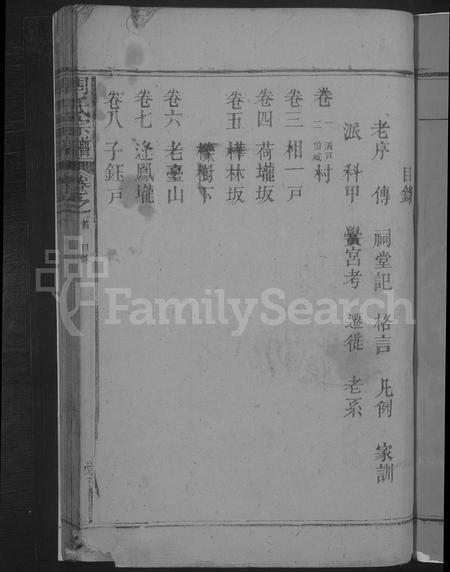 目錄
老序 傳 祠堂記 格言 凡例 家訓
派 科甲 黌宮考 遷徙 老系
卷一二 酒戸 村
卷三 相一戸
卷四 荷壠坂
卷五 樺林坂
樹下
卷六 老臺山
卷七 逢鳳壠
卷八 子鈺戸
周氏宗譜 卷之首 目錄
FamilySearch